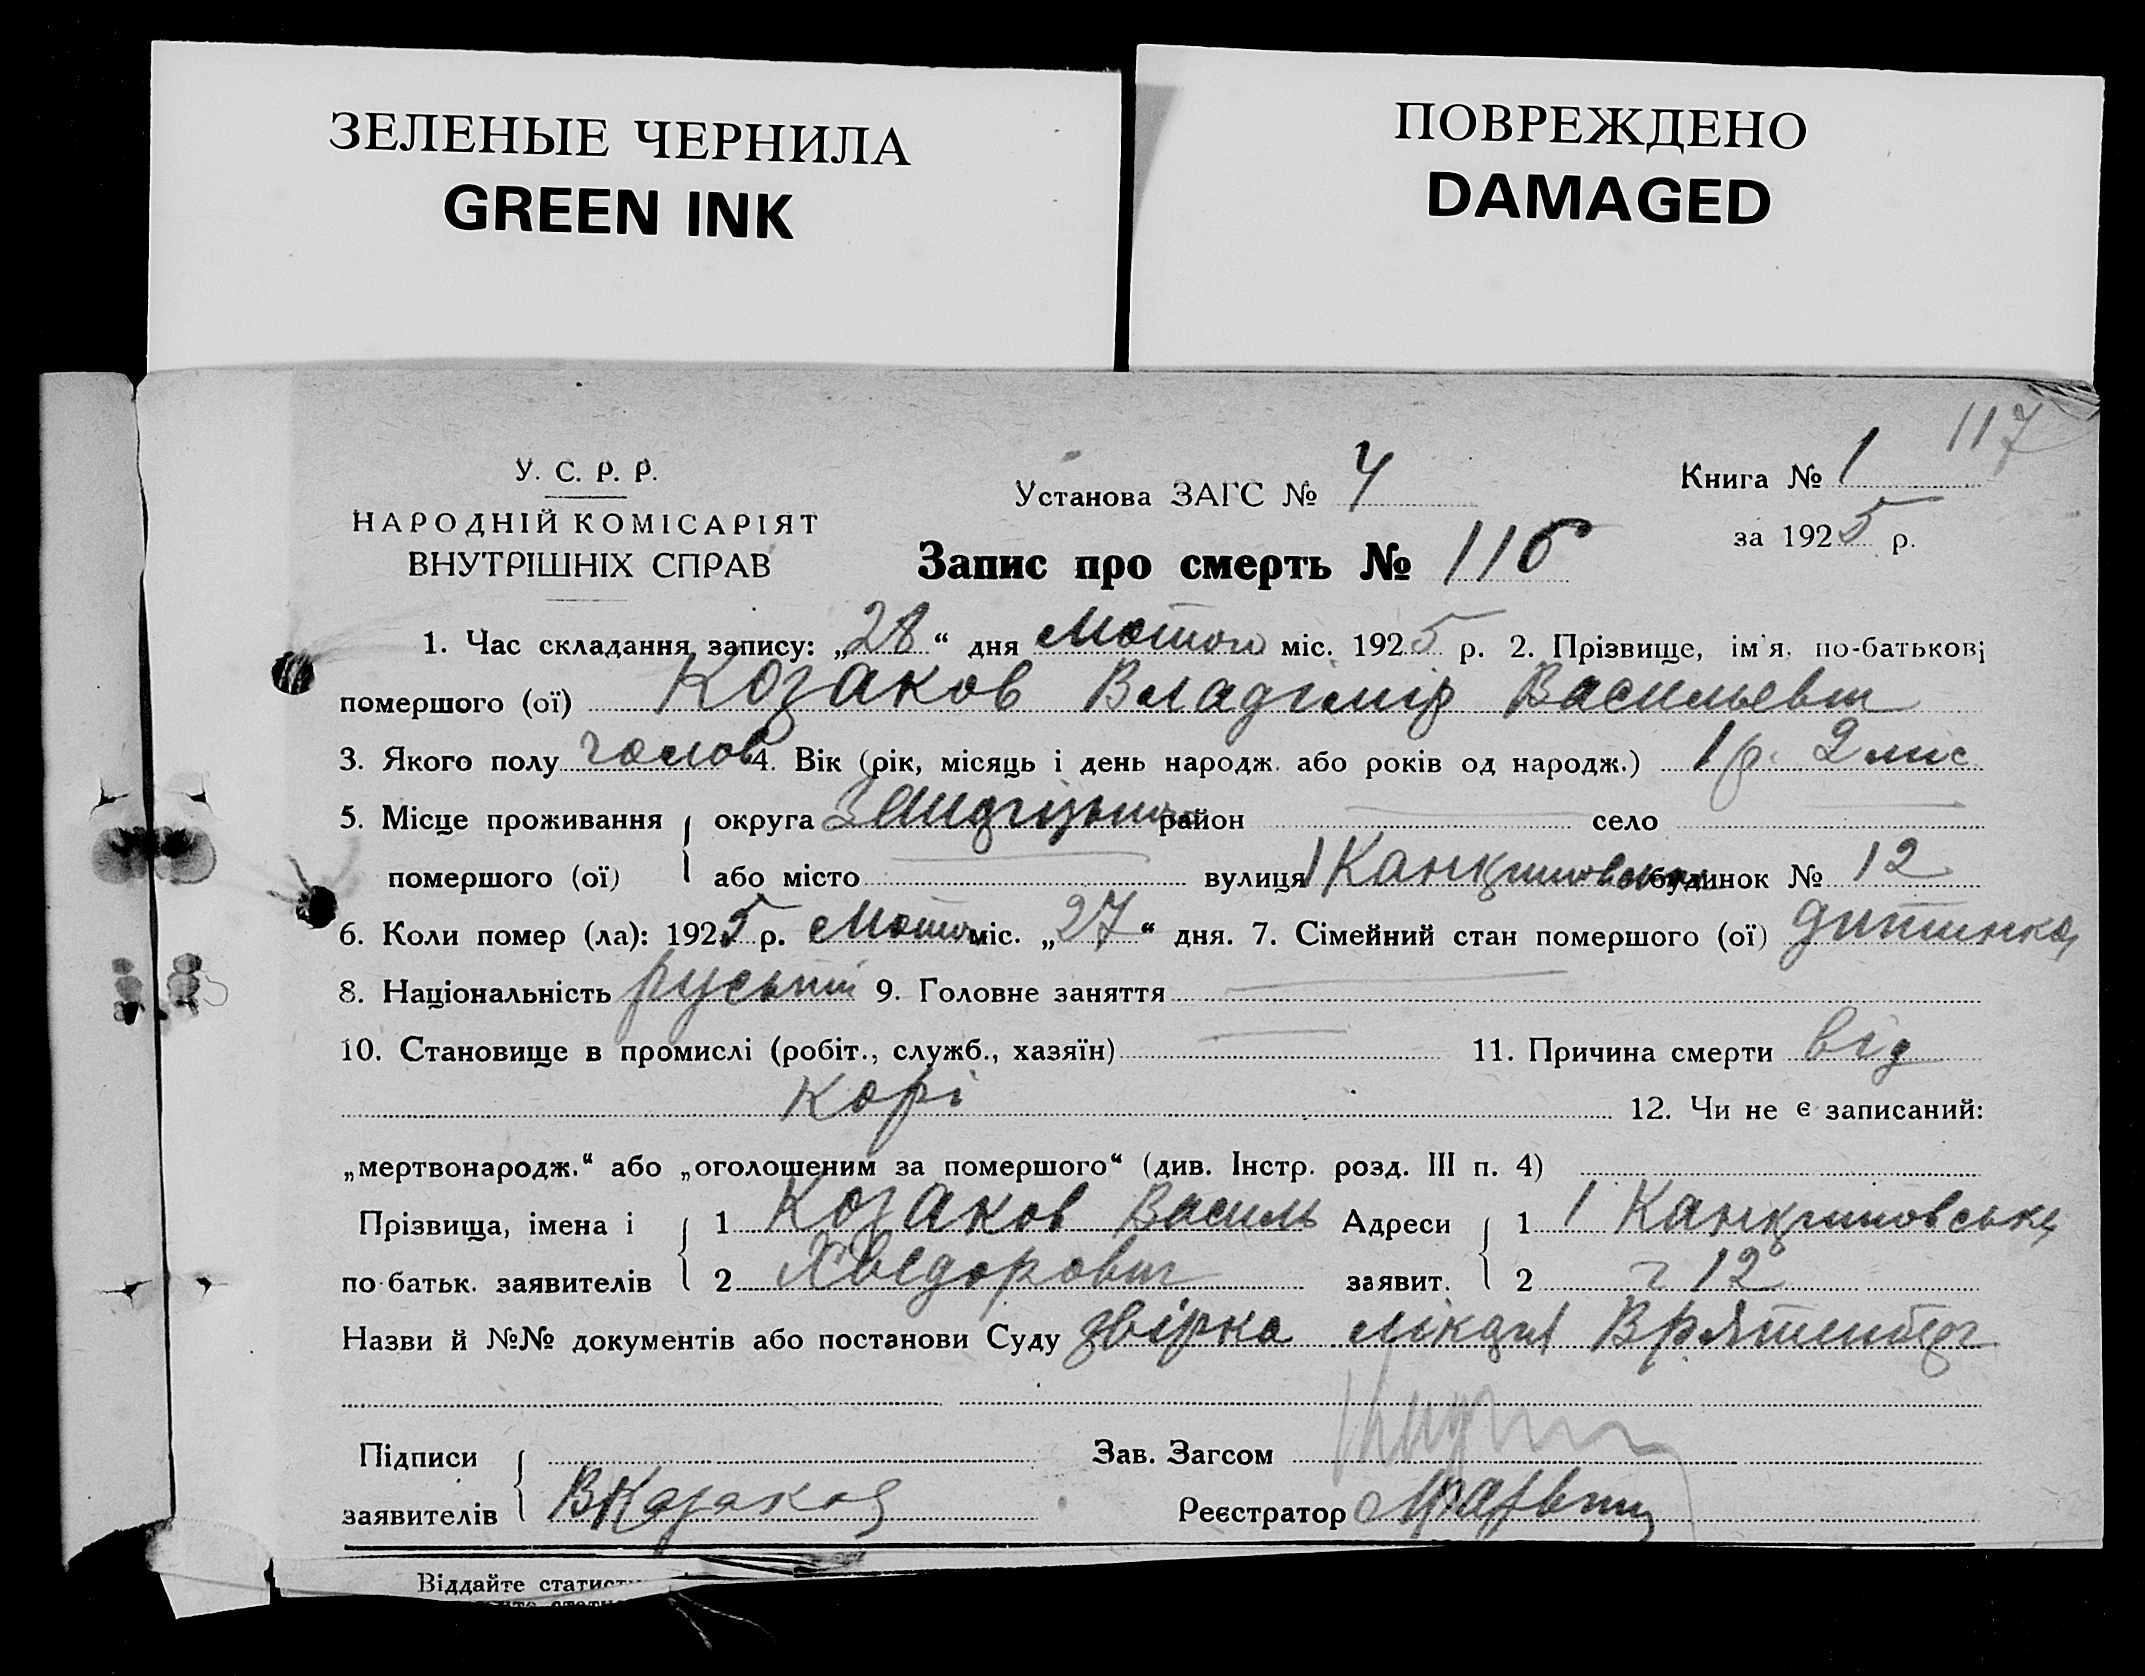 ЗЕЛЕНЫЕ ЧЕРНИЛА
GREEN INK
ПОВРЕЖДЕНО
DAMAGED
117
У. С. Р. Р.
НАРОДНІЙ КОМІСАРІЯТ
ВНУТРІШНІХ СПРАВ
Установа ЗАГС № 4
Книга № 1
за 1925 р.
Запис про смерть № 116
1. Час складання запису: „28“ дня Лютого міс. 1925 р. 2. Прізвище, ім'я, по-батькові
помершого (ої) Козаков Владімір Васильевич
3. Якого полу чолов 4. Вік (рік, місяць і день народж. або років од народж.) 1 р. 2 міс
5. Місце проживання округа район село
помершого (ої) або місто вулиця 1 будинок № 12
6. Коли помер (ла): 1925 р. Лютого міс. „27“ дня. 7. Сімейний стан помершого (ої) дитинка
8. Національність руський 9. Головне заняття
10. Становище в промислі (робіт., служб., хазяїн) 11. Причина смерти від
корі 12. Чи не є записаний:
„мертвонародж.“ або „оголошеним за помершого“ (див. Інстр. розд. III п. 4)
Прізвища, імена і 1 Козаков Василь Адреси 1 1
по-батьк. заявителів 2 Хведорович заявит. 2 ч 12
Назви й №№ документів або постанови Суду звірка лікаря
Підписи Зав. Загсом
заявителів ВКозаков Реєстратор
Віддайте